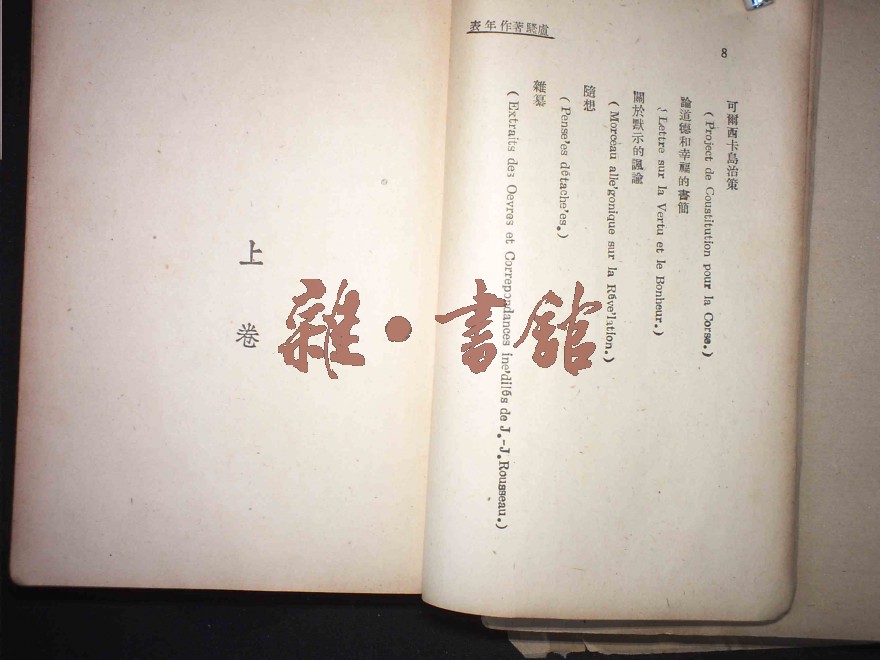 表年作著騷盧
8
可爾西卡島治策
( Project de Coustitution pour la Corse.)
論道德和幸福的書簡
( Lettre sur la Vertu et le Bonheur.)
關於默示的諷諭
( Morceau alle'gonique sur la Réve'lation.)
隨想
( Pense'es détache'es.)
雜纂
( Extraits des Oevres et Correpondances ine'dités de J.-J. Rousseau.)
上卷
雜•書館